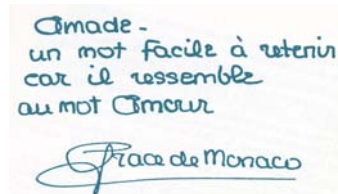 Amade -
un mot facile à retenir
car il ressemble
au mot Amour
Grace de Monaco